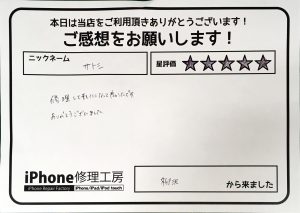 本日は当店をご利用頂きありがとうございます！
ご感想をお願いします！
ニックネーム
サトシ
星評価 ★★★★★
修理して
ありがとうございました
iPhone修理工房
iPhone Repair Factory iPhone/iPad/iPod touch
から来ました